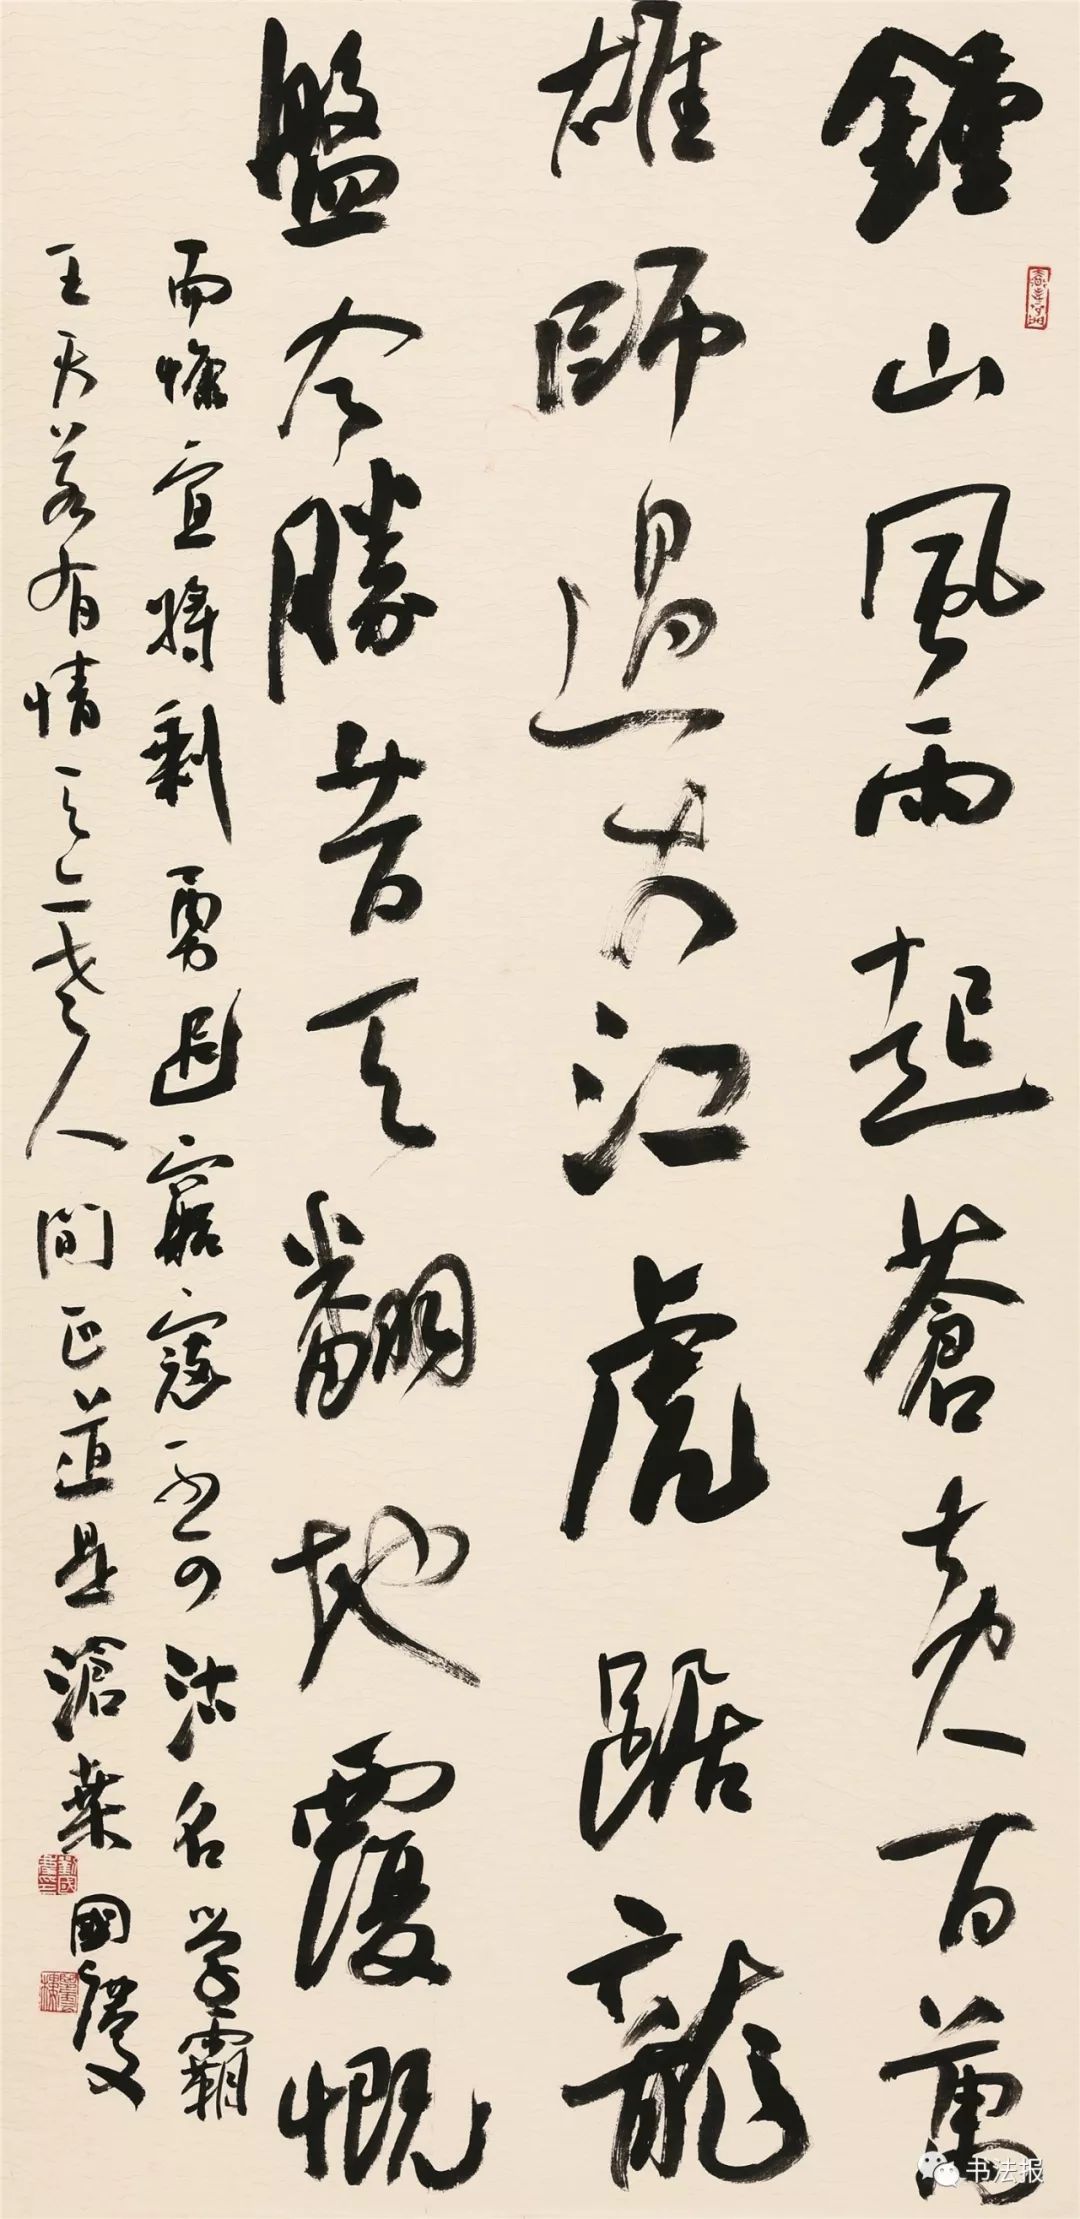 鍾山風雨起蒼黃百萬
雄師過大江虎踞龍
盤今勝昔天翻地覆慨
而慷宜將剩勇追窮寇不可沽名學霸
王天若有情天亦老人間正道是滄桑
國慶
书法报